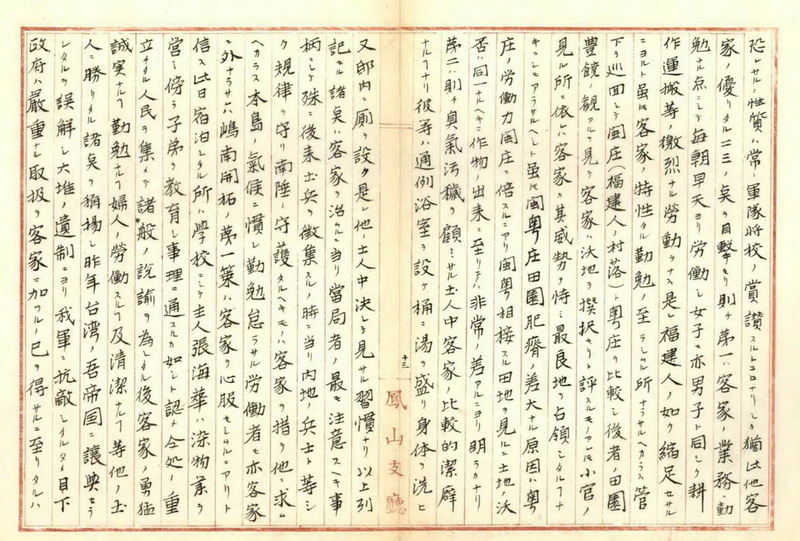 恐レサルノ性質ハ常ニ軍隊将校ノ賞讃スルトコロナリシカ猶此他客
家ノ優リタル二三ノ点ヲ目撃セリ則チ第一ハ客家ノ業務ニ勤
勉ナル点ニシテ毎朝早天ヨリ労働シ女子モ亦男子ト同シク耕
作運搬等ノ激烈ナル労働ヲナス是レ福建人ノ如ク縮足セサル
ニヨルト虽モ客家ノ特性タル勤勉ノ至ラシムル所ナラサルヘカラス管
下ヲ巡回シテ閩庄(福建人ノ村落)ト粤庄ヲ比較シ後者ノ田園
豊饒ノ観アルヲ見テ客家ハ沃地ヲ撰択セリト評スルモノアルモ小官ノ
見ル所ニ依レハ客家カ其威勢ヲ恃ミ最良地ヲ占領シタルフナ
キニシモアラサルヘシト虽モ閩粤庄田園肥瘠ノ差大ナル原因ハ粤
庄ノ労働力閩庄ニ倍スルニアリ閩粤相接スル田地ヲ見ルニ土地ノ沃
否ハ同一ナルヘキニ作物ノ出来ニ至リテハ非常ノ差アルニヨリ明ラカナリ
第二ハ則チ臭氣汚穢ヲ顧ミサル土人中客家ノ比較的潔癖
ナルフナリ彼等ハ通例浴室ヲ設ケ桶ニ湯ヲ盛リ身体ヲ洗ヒ
十三
鳳山支廳
又邸内ニ厠ヲ設ク是レ他土人中決シテ見サル習慣ナリ以上列
記セル諸点ハ客家ヲ治ムルニ当リ當局者ノ最モ注意スヘキ事
柄ニシテ殊ニ後来土兵ヲ徴集スルノ時ニ当リ内地ノ兵士ト等シ
ク規律ヲ守リ南陲ヲ守護シタルヘキモノハ客家ヲ措テ他ニ求ム
ヘカラス本島ノ氣候ニ慣レ勤勉怠ラサル労働者モ亦客家
ニ外ナラサレハ嶋南開拓ノ第一策ハ客家ヲ心服セシムルニアリト
信ス此日宿泊シタル所ハ学校ニシテ主人張海華ハ染物業ヲ
営ミ傍ラ子弟ヲ教育シ事理ニ通スルカ如シト認メ仝処ノ重
立チタル人民ヲ集メテ諸般ノ説諭ヲ為シタル後客家ノ勇猛
誠実ナルフ勤勉ナルフ婦人ノ労働スルフ及清潔ナルフ等他ノ土
人ニ勝リタル諸点ヲ称揚シ昨年台湾ノ吾帝国ニ讓與セラ
レタルヲ誤解シ六堆ノ遺制ニヨリ我軍ニ抗敵シタルタメ目下
政府ハ嚴重ナル取扱ヲ客家ニ加フルノ已ヲ得サルニ至リタルハ